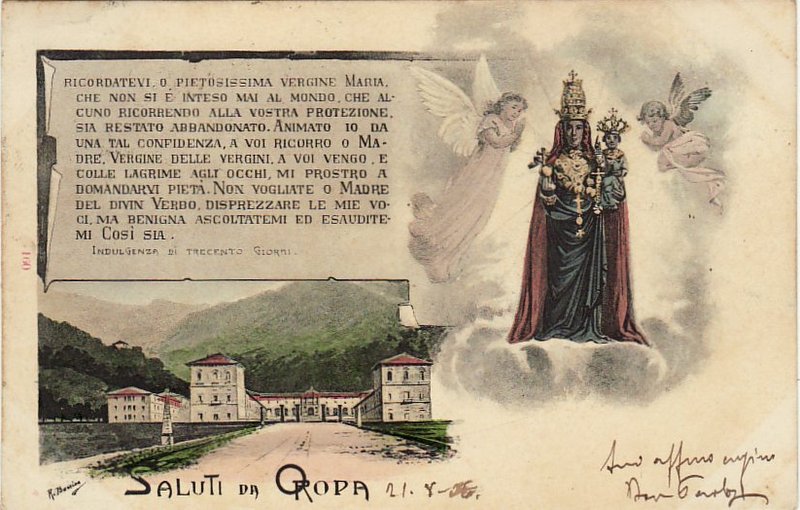 RICORDATEVI, O PIETOSISSIMA VERGINE MARIA,
CHE NON SI È INTESO MAI AL MONDO, CHE AL-
CUNO RICORRENDO ALLA VOSTRA PROTEZIONE,
SIA RESTATO ABBANDONATO. ANIMATO IO DA
UNA TAL CONFIDENZA, A VOI RICORRO O MA-
DRE, VERGINE DELLE VERGINI, A VOI VENGO, E
COLLE LAGRIME AGLI OCCHI, MI PROSTRO A
DOMANDARVI PIETÀ. NON VOGLIATE O MADRE
DEL DIVIN VERBO, DISPREZZARE LE MIE VO-
CI, MA BENIGNA ASCOLTATEMI ED ESAUDITE-
MI COSÌ SIA.
INDULGENZA DI TRECENTO GIORNI.
160
SALUTI DA OROPA 21.8-06.